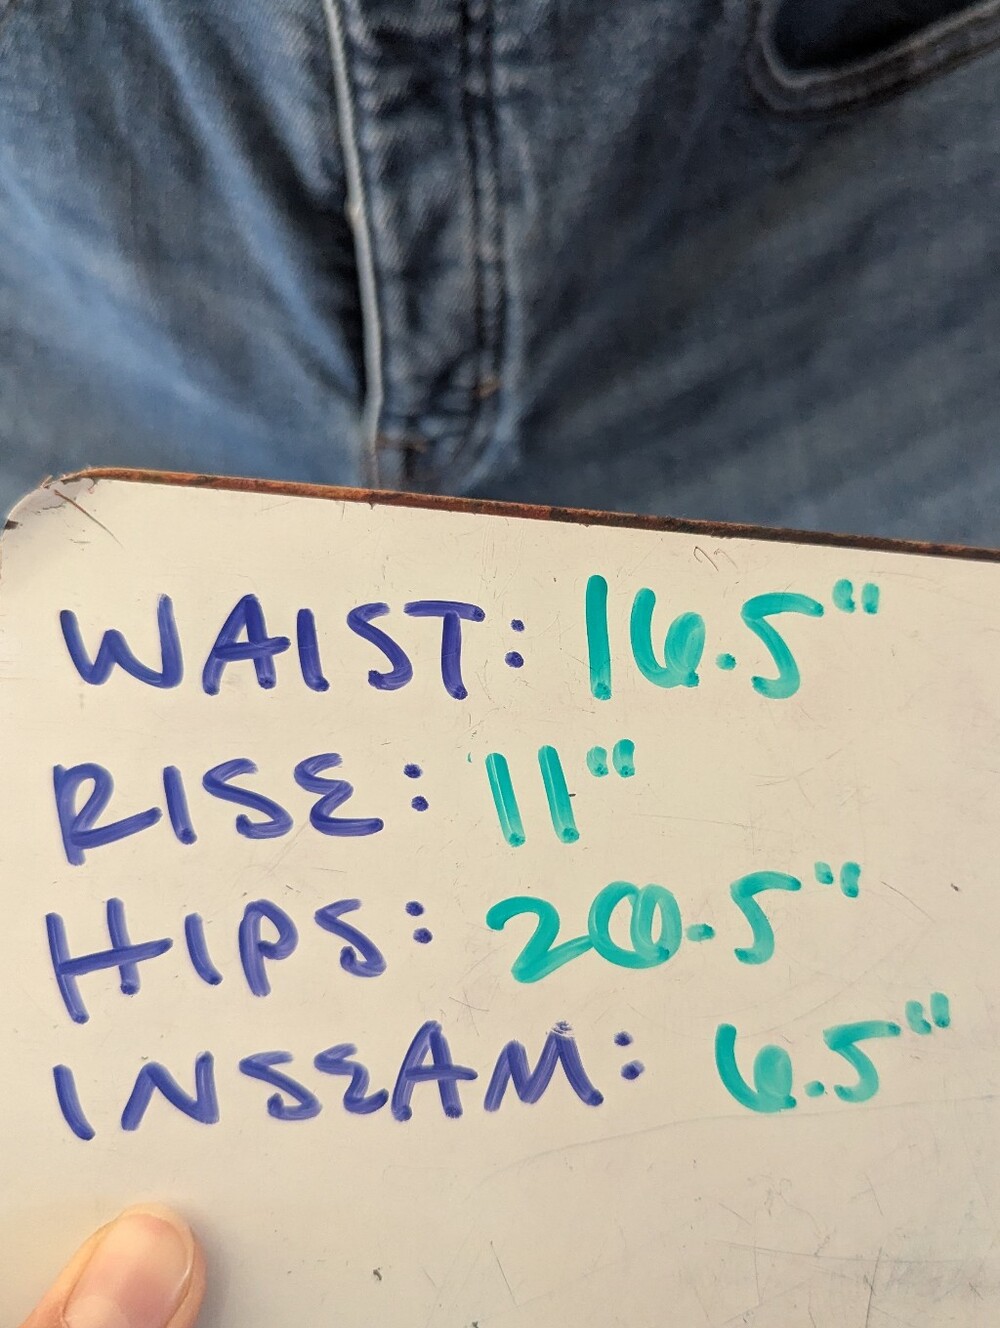 WAIST: 16.5"
RISE: 11"
HIPS: 20.5"
INSEAM: 6.5"